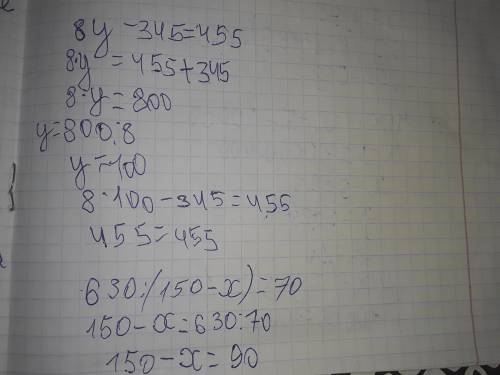 8y-345=455
8·y=455+345
8·y=800
y=800:8
y=100
8·100-345=455
455=455
630:(150-x)=70
150-x=630:70
150-x=90